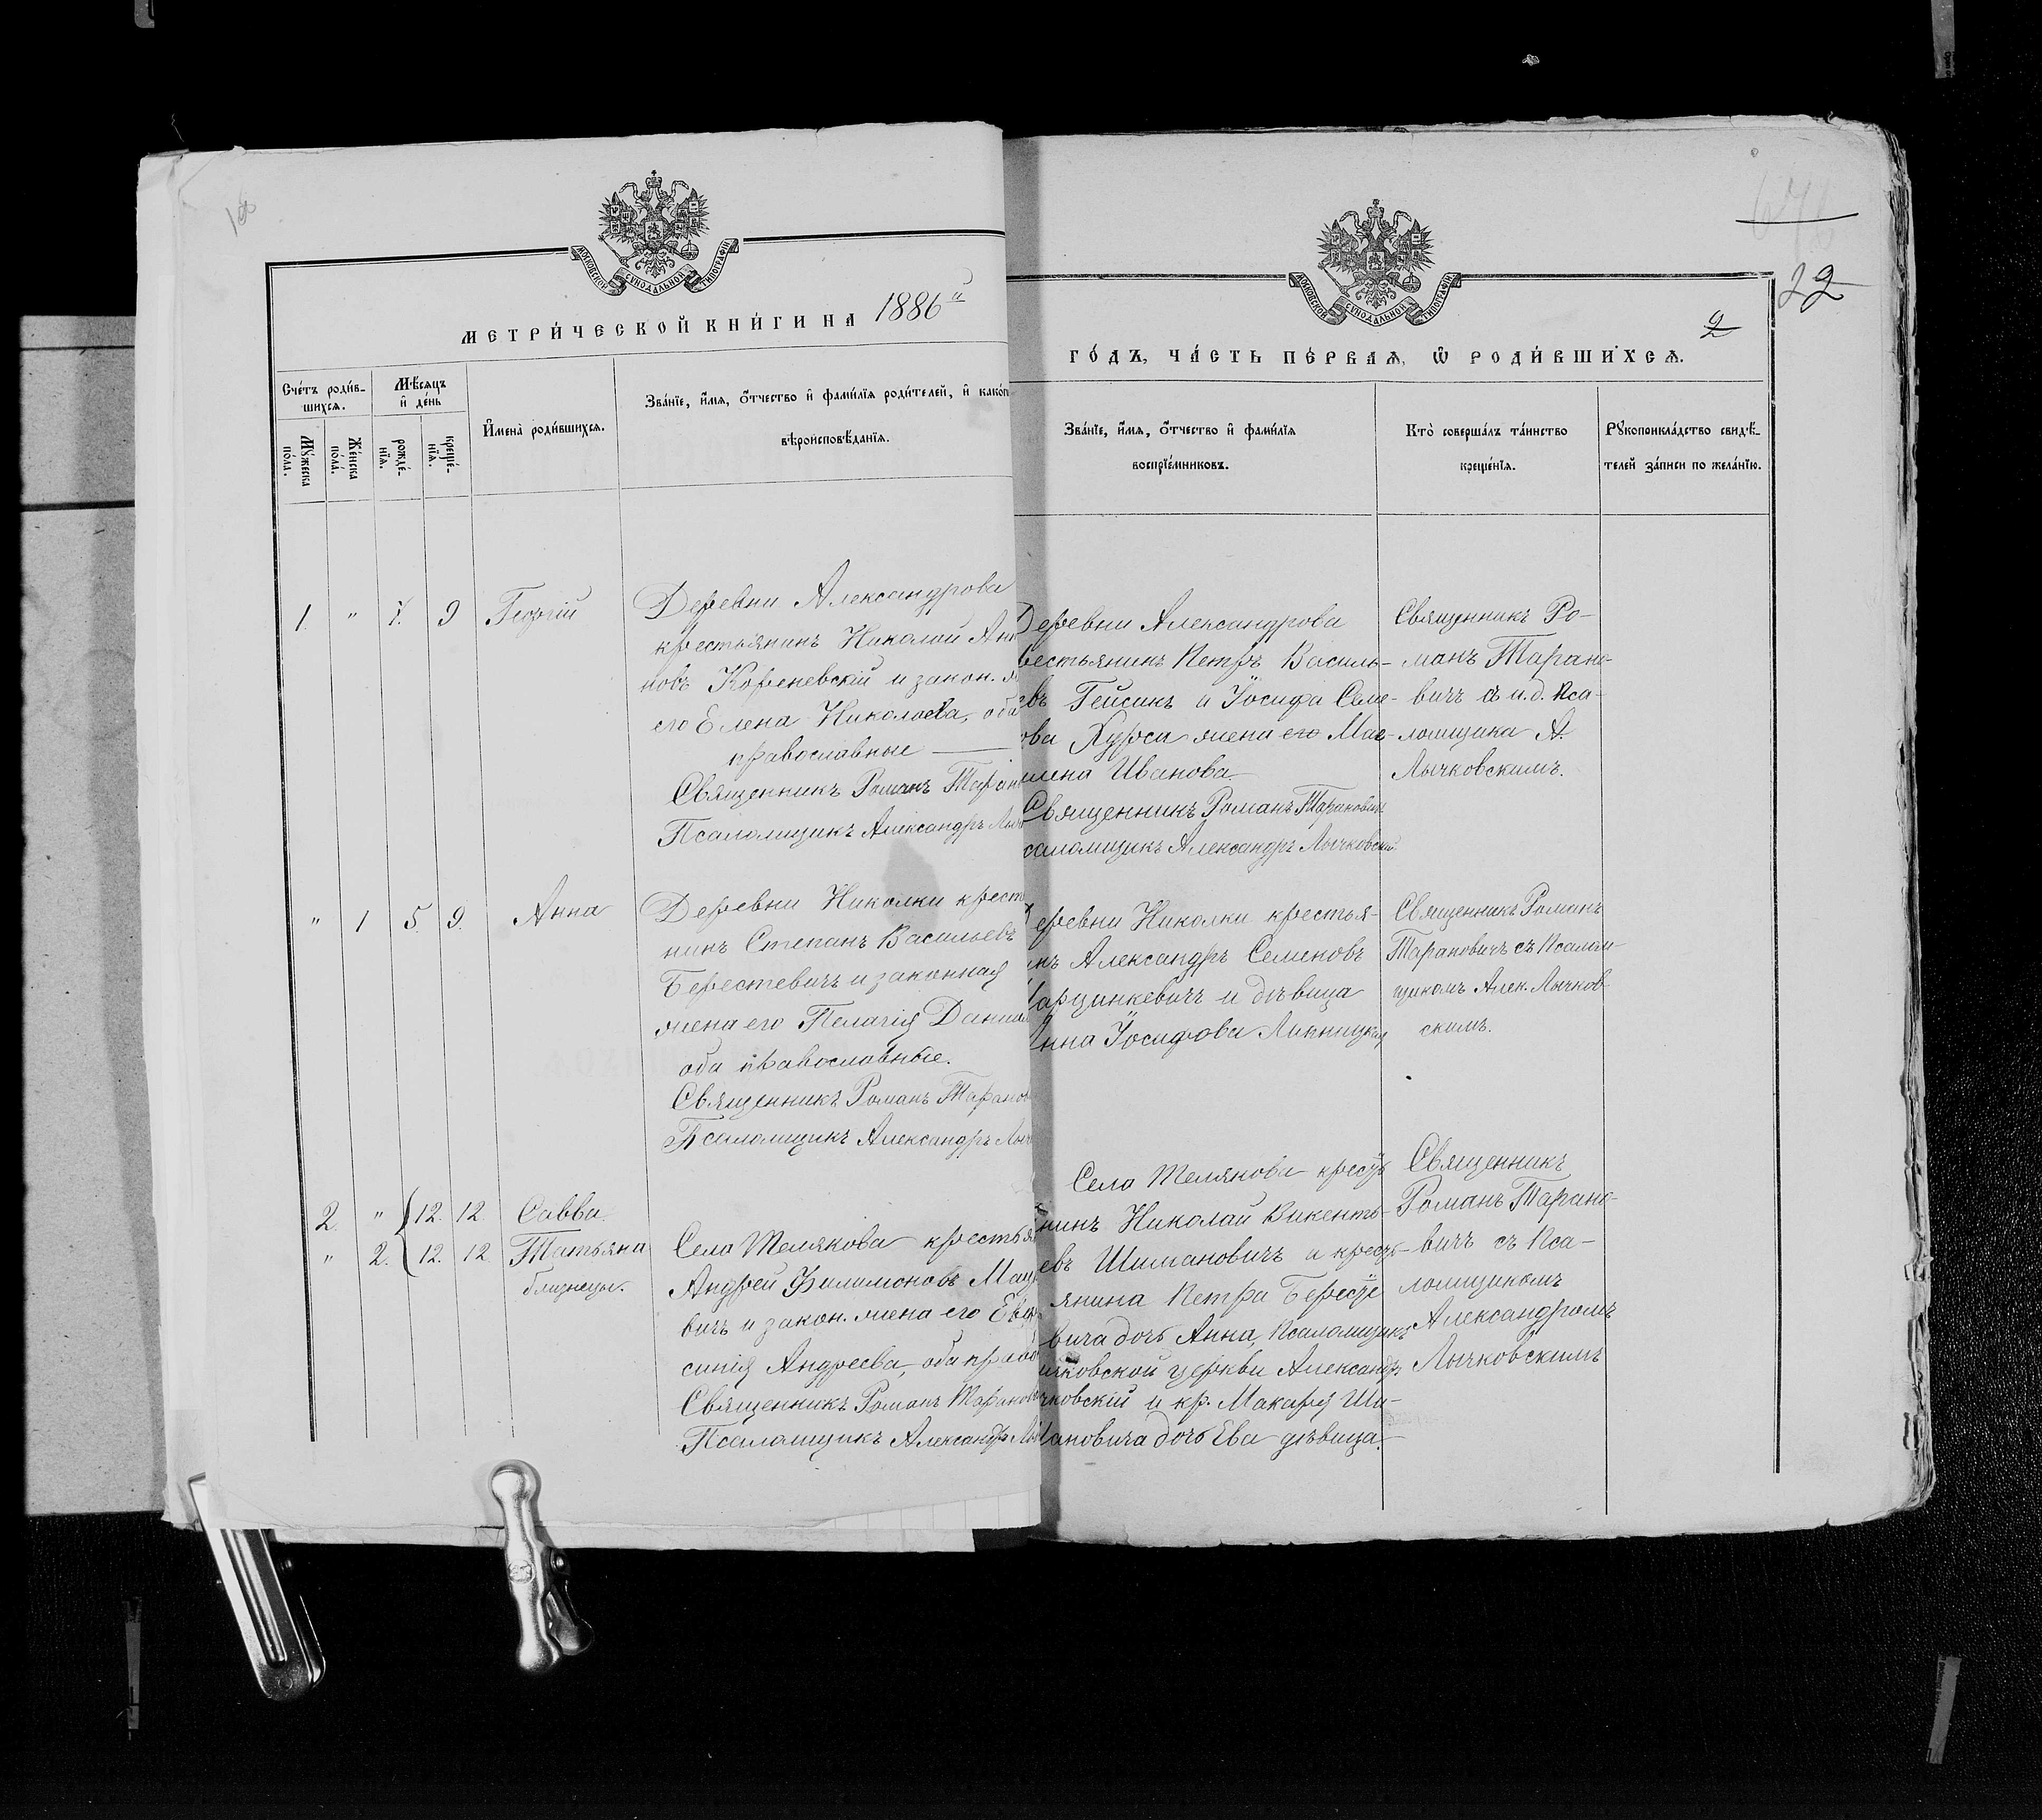 МОСКОВСКОЙ СУНОДАЛЬНОЙ ТИПОГРАФІИ
МЕТРИ́ЧЕСКОЙ КНИ́ГИ НА 1886й
Сче́тъ роди́в-
шихся.
Мѣ́сяцъ
и҆ де́нь
Му́жеска
по́ла.
Же́нска
по́ла.
рожде́-
нїя.
креще́-
нїя.
И҆мена̀ роди́вшихся.
Зва́нїе, и҆́мя, ѻ҆́тчество и҆ фами́лїя роди́телей, и҆ како́г
вѣроисповѣ́данїя.
1. " 1. 9 Георгій
Деревни Александрова
крестьянинъ Николай Ан
новъ Кореневскій и закон. ж
его Елена Николаева, оба
православные
Священникъ Романъ Таран
Псаломщикъ Александръ Лыч
" 1 5. 9. Анна
Деревни Николки крест
нинъ Степанъ Васильевъ
Берестевичъ и законная
жена его Пелагія Дании
оба православные.
Священникъ Романъ Таранов
Псаломщикъ Александръ Лыч
2. " 12. 12. Савва
" 2. 12. 12 Татьяна
близнецы.
Села Телякова крестья
Андрей Филимоновъ Мац
вичъ и закон. жена его Евф
синія Андреева, оба прав
Священникъ Романъ Таранов
Псаломщикъ Александръ Лыч
МОСКОВСКОЙ СУНОДАЛЬНОЙ ТИПОГРАФІИ
22
2
ГО́ДЪ, ЧА́СТЬ ПЕ́РВАЯ, Ѽ РОДИ́ВШИХСЯ.
Зва́нїе, и҆́мя, ѻ҆́тчество и҆ фами́лїя
воспрїе́мниковъ.
Кто̀ соверша́лъ та́инство
креще́нїя.
Рукоприкла́дство свидѣ́-
телей за́писи по жела́нїю.
Деревни Александрова
рестьянинъ Петръ Василь-
евъ Гейсикъ и Іосифа Семе-
ова Курса жена его Маг-
лена Иванова
Священникъ Романъ Тарановичъ
саломщикъ Александръ Лычковскій
Священникъ Ро-
манъ Тарано-
вичъ съ и.д. пса-
ломщика А.
Лычковскимъ.
еревни Николки крестья-
нъ Александръ Семеновъ
арцинкевичъ и дѣвица
Анна Іосифова Липницкая
Священникъ Романъ
Тарановичъ съ псалом-
щикомъ Алек. Лычков-
скимъ.
Села Телякова крестья
нинъ Николай Викенть-
евъ Шимановичъ и кресть-
янина Петра Бересте
вича дочь Анна, псаломщикъ
яковской церкви Александръ
чковскій и кр. Макарія Ши-
мановича дочь Ева дѣвица.
Священникъ
Романъ Тарано-
вичъ съ пса-
ломщикомъ
Александромъ
Лычковскимъ